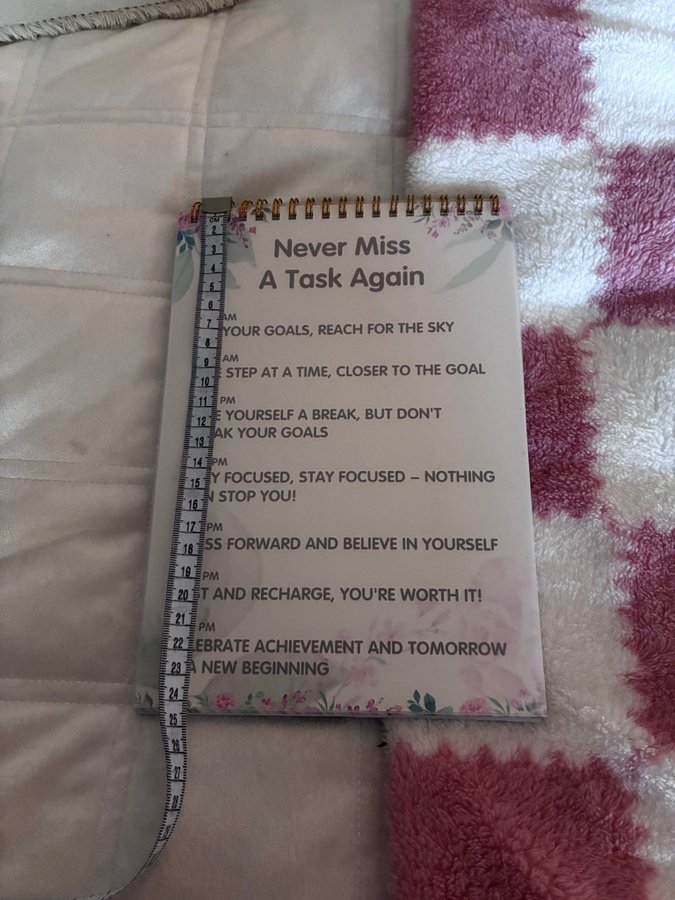 Never Miss
A Task Again
AM
YOUR GOALS, REACH FOR THE SKY
AM
STEP AT A TIME, CLOSER TO THE GOAL
PM
YOURSELF A BREAK, BUT DON'T
YOUR GOALS
PM
FOCUSED, STAY FOCUSED – NOTHING
STOP YOU!
PM
FORWARD AND BELIEVE IN YOURSELF
PM
AND RECHARGE, YOU'RE WORTH IT!
PM
ACHIEVEMENT AND TOMORROW
A NEW BEGINNING
2
3
4
5
6
7
8
9
10
11
12
13
14
15
16
17
18
19
20
21
22
23
24
25
26
27
28